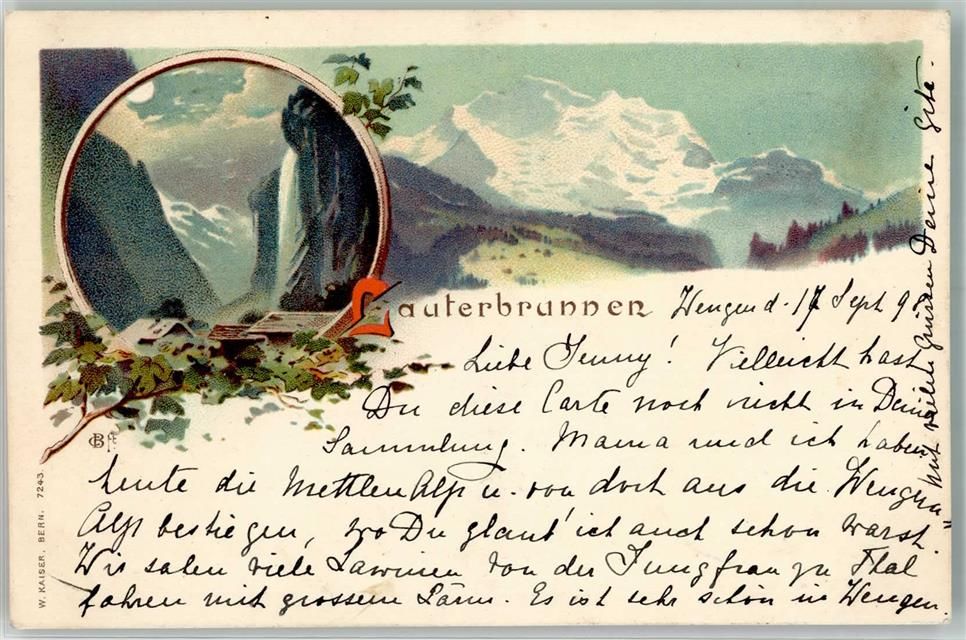 Lauterbrunnen
Wengen d. 17 Sept 9
Liebe Jenny! Vielleicht hast
Du diese Carte noch nicht in Deine
Sammlung. Mama und ich haben
heute die Mettlen Alp u. von dort aus die Wengern-
Alp bestiegen, wo Du glaub' ich auch schon warst.
Wir sahen viele Lawinen von der Jungfrau zu Thal
fahren mit grossem Lärm. Es ist sehr schön in Wengen.
Mit vielen Grüssen Deine Gite.
CB
W. KAISER, BERN. 7243.